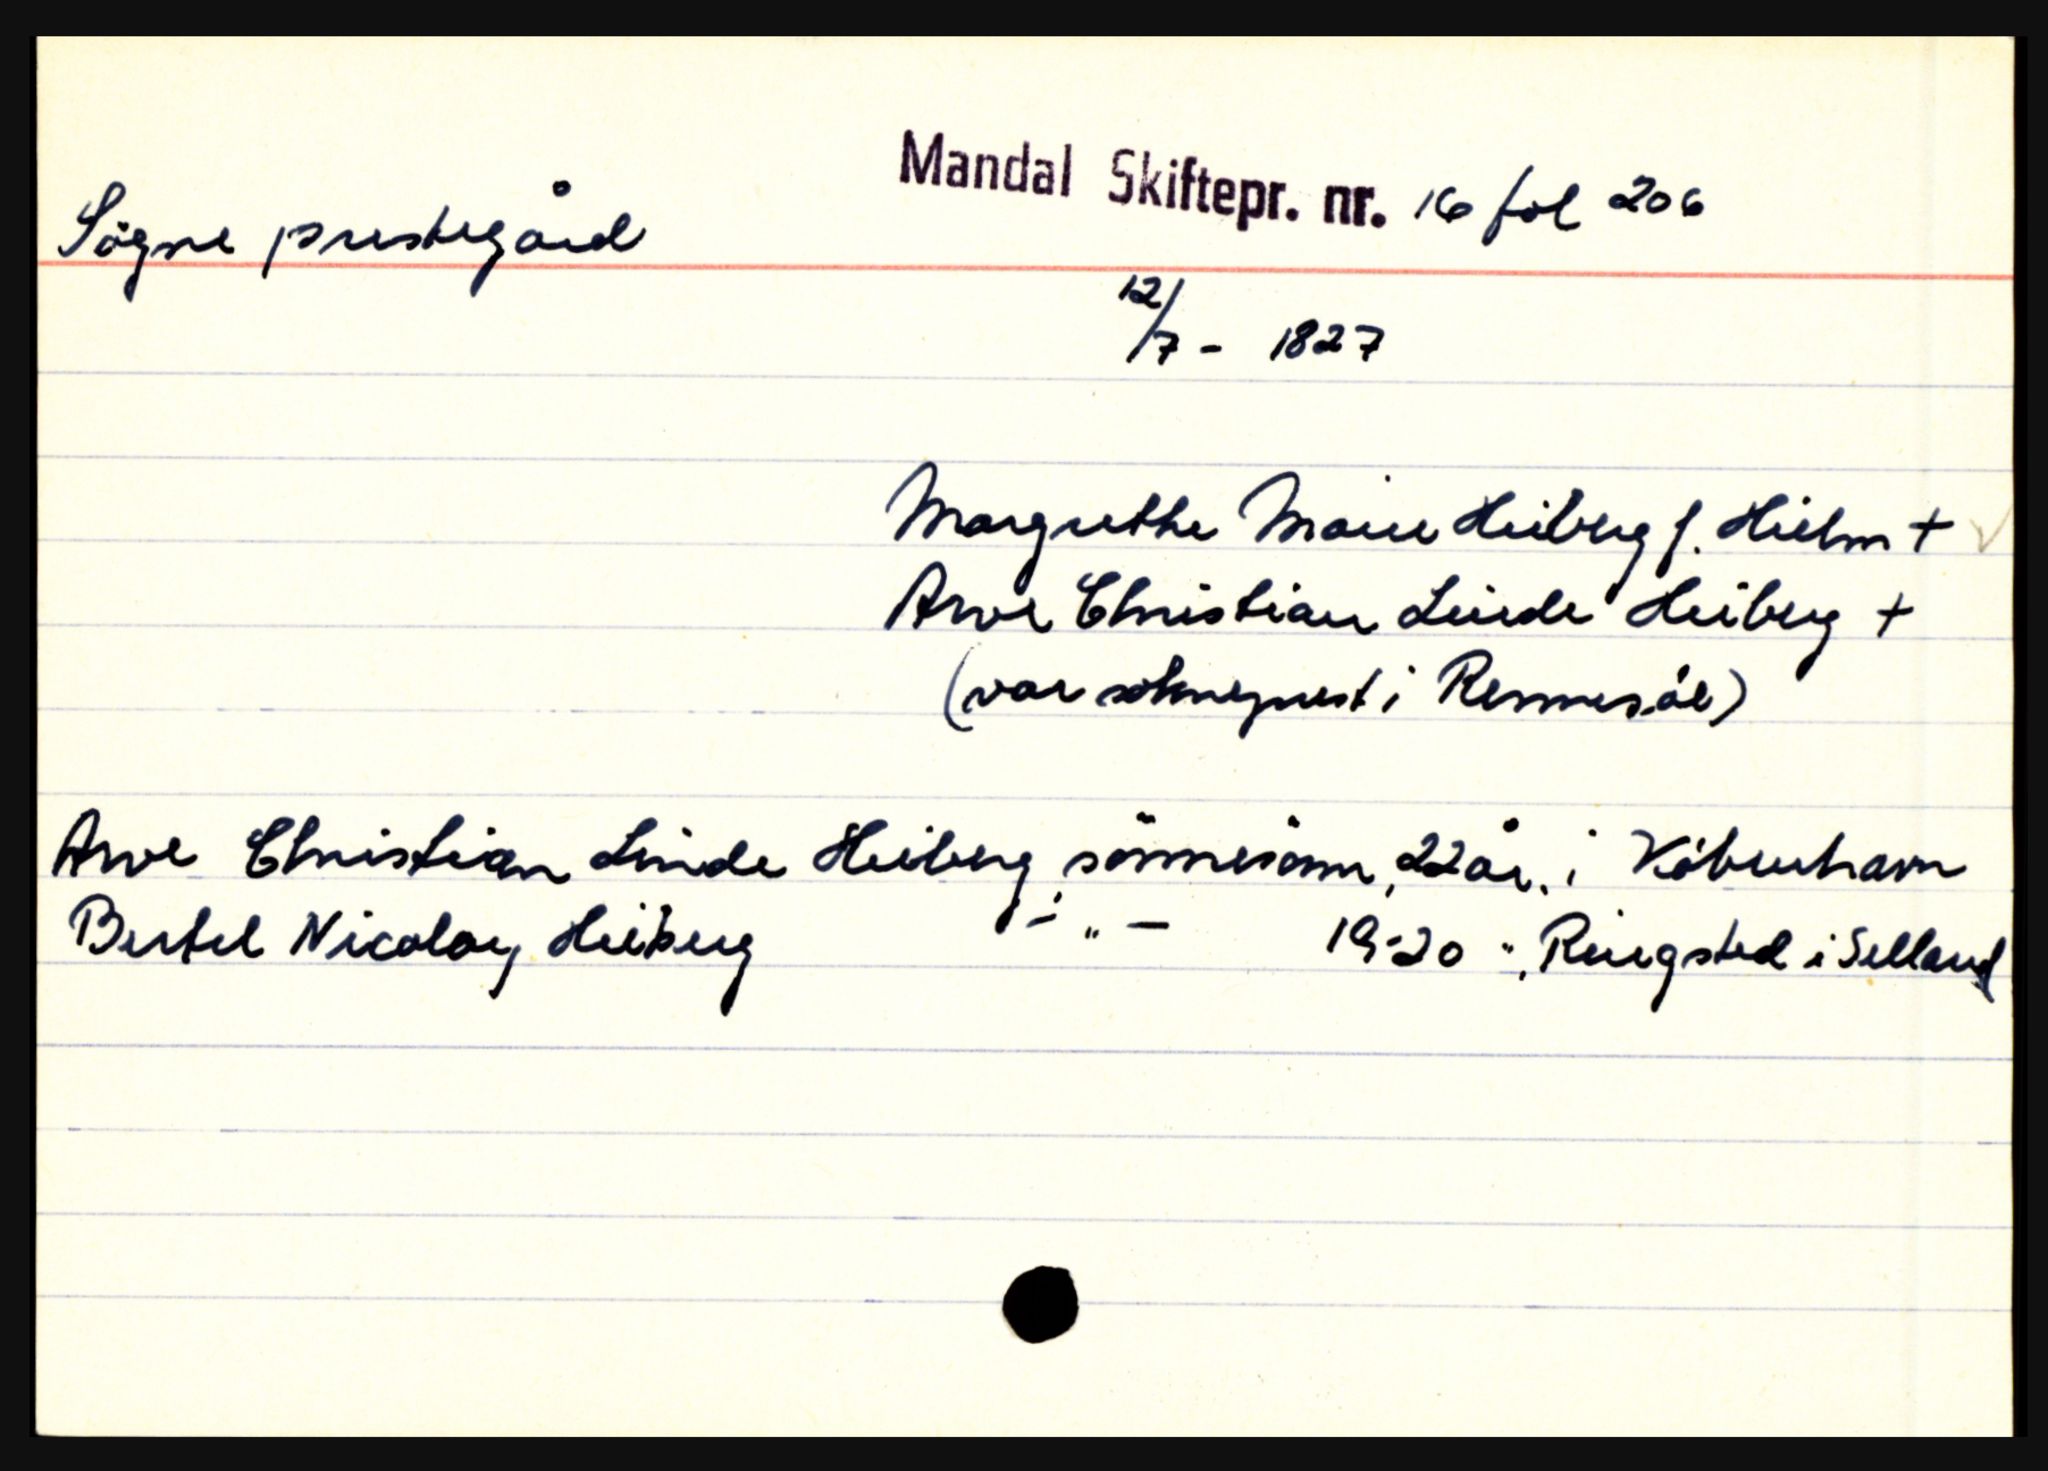 Mandal Skiftepr. nr. 16 fol 206
Sögne prestegård
12/7 - 1827
Margrethe Marie Heiberg f. Hielm +
Arve Christian Linde Heiberg +
(var sokneprest i Rennesöe)
Arve Christian Linde Heiberg, sönnesönn, 22 år, i Köbenhavn
Bertel Nicolay Heiberg - " - 19-20 ", Ringsted i Selland